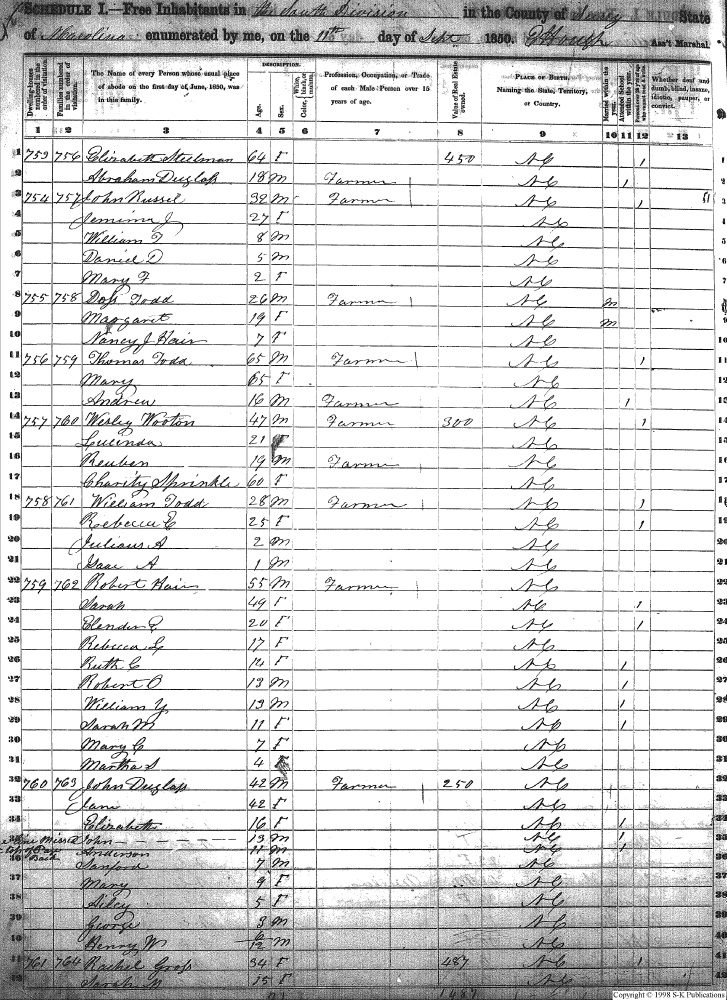 SCHEDULE I.—Free Inhabitants in the South Division in the County of Surry State
of N Carolina enumerated by me, on the 11th day of Sept 1850. Ass't Marshal
Dwelling-houses numbered in the order of visitation.
Families numbered in the order of visitation.
The Name of every Person whose usual place of abode on the first day of June, 1850, was in this family.
DESCRIPTION.
Age.
Sex.
Color, White, black, or mulatto.
Profession, Occupation, or Trade of each Male Person over 15 years of age.
Value of Real Estate owned.
PLACE OF BIRTH. Naming the State, Territory, or Country.
Married within the year.
Attended School within the year.
Persons over 20 y'rs of age who cannot read & write.
Whether deaf and dumb, blind, insane, idiotic, pauper, or convict.
1 2 3 4 5 6 7 8 9 10 11 12 13
1 753 756 Elizabeth Steelman 64 F 450 N C 1
2 Abraham Duglass 18 M Farmer N C 1 2
3 754 757 John Russel 32 M Farmer N C 1 3
4 Jemima J 27 F N C 4
5 William T 8 M N C 5
6 Daniel D 5 M N C 6
7 Mary F 2 F N C 7
8 755 758 Doss Todd 26 M Farmer N C M 8
9 Margaret 19 F N C M 9
10 Nancy J Hair 7 F N C 10
11 756 759 Thomas Todd 65 M Farmer N C 1 11
12 Mary 65 F N C 12
13 Andrew 16 M Farmer N C 1 13
14 757 760 Wesley Wooton 47 M Farmer 300 N C 1 14
15 Lucinda 21 F N C 15
16 Reuben 19 M Farmer N C 16
17 Charity Sprinkle 60 F N C 17
18 758 761 William Todd 28 M Farmer N C 1 18
19 Rebecca E 25 F N C 1 19
20 Julians A 2 M N C 20
21 Isaac A 1 M N C 21
22 759 762 Robert Hair 55 M Farmer N C 22
23 Sarah 49 F N C 1 23
24 Elender E 20 F N C 1 24
25 Rebecca L 17 F N C 25
26 Ruth C 14 F N C 1 26
27 Robert O 13 M N C 1 27
28 William Y 13 M N C 1 28
29 Sarah M 11 F N C 1 29
30 Mary C 7 F N C 30
31 Martha S 4 F N C 31
32 760 763 John Duglass 42 M Farmer 250 N C 32
33 Jane 42 F N C 33
34 Elizabeth 16 F N C 1 34
John 13 M N C 1
Anderson 11 M N C 1
36 Sanford 7 M N C 36
37 Mary 9 F N C 37
38 Silcy 5 F N C 38
39 George 3 M N C 39
40 Henry W 6/12 M N C 40
41 761 764 Rachel Gross 34 F 487 N C 1 41
Sarah N 15 F N C
Copyright © 1998 S-K Publications